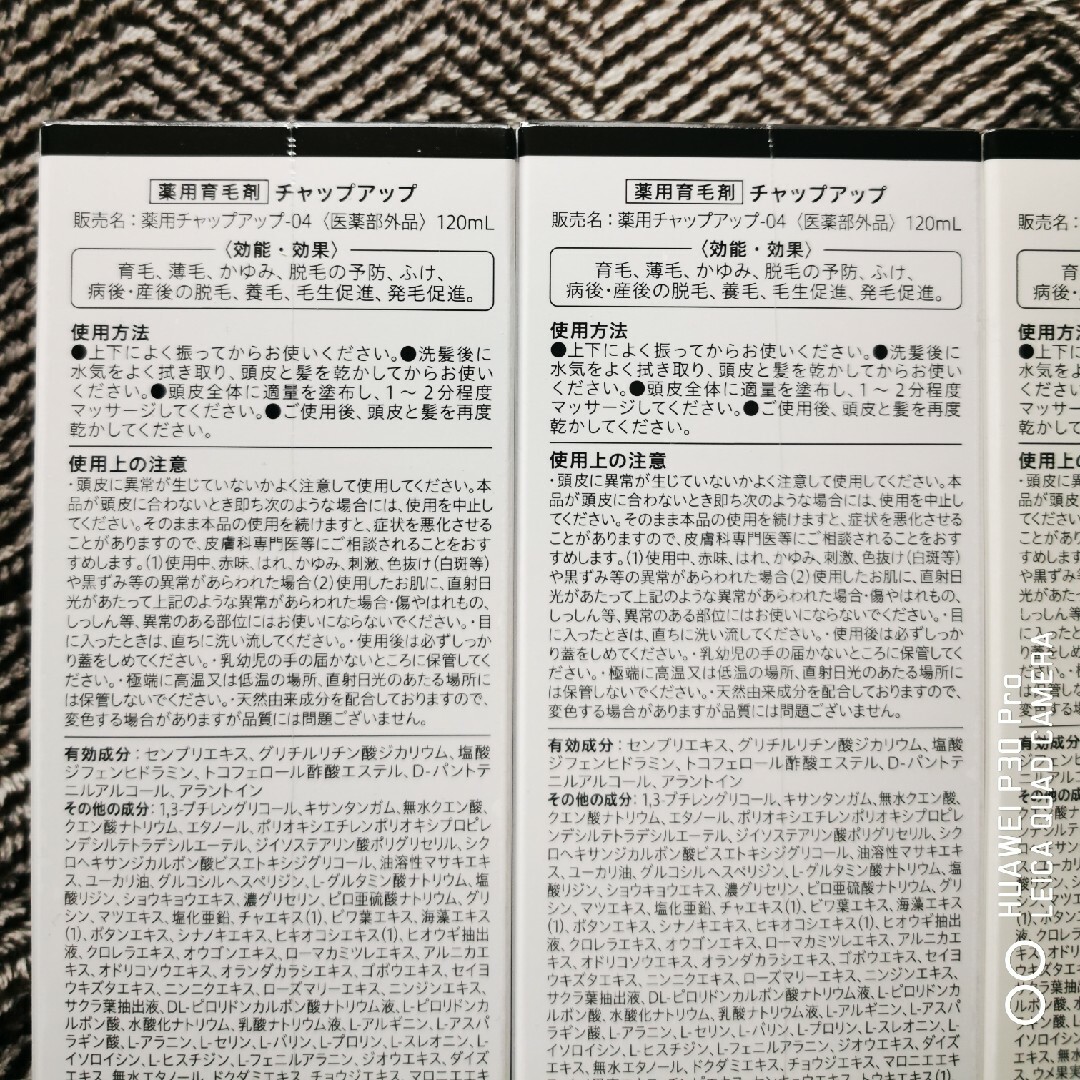 薬用育毛剤 チャップアップ
販売名：薬用チャップアップ-04〈医薬部外品〉120mL
〈効能・効果〉
育毛、薄毛、かゆみ、脱毛の予防、ふけ、
病後・産後の脱毛、養毛、毛生促進、発毛促進。
使用方法
●上下によく振ってからお使いください。●洗髪後に
水気をよく拭き取り、頭皮と髪を乾かしてからお使い
ください。●頭皮全体に適量を塗布し、1～2分程度
マッサージしてください。●ご使用後、頭皮と髪を再度
乾かしてください。
使用上の注意
・頭皮に異常が生じていないかよく注意して使用してください。本
品が頭皮に合わないとき即ち次のような場合には、使用を中止し
てください。そのまま本品の使用を続けますと、症状を悪化させる
ことがありますので、皮膚科専門医等にご相談されることをおす
すめします。(1)使用中、赤味、はれ、かゆみ、刺激、色抜け(白斑等)
や黒ずみ等の異常があらわれた場合(2)使用したお肌に、直射日
光があたって上記のような異常があらわれた場合・傷やはれもの、
しっしん等、異常のある部位にはお使いにならないでください。・目
に入ったときは、直ちに洗い流してください。・使用後は必ずしっか
り蓋をしめてください。・乳幼児の手の届かないところに保管してく
ださい。・極端に高温又は低温の場所、直射日光のあたる場所に
は保管しないでください。・天然由来成分を配合しておりますので、
変色する場合がありますが品質には問題ございません。
有効成分：センブリエキス、グリチルリチン酸ジカリウム、塩酸
ジフェンヒドラミン、トコフェロール酢酸エステル、D-パントテ
ニルアルコール、アラントイン
その他の成分：1,3-ブチレングリコール、キサンタンガム、無水クエン酸、
クエン酸ナトリウム、エタノール、ポリオキシエチレンポリオキシプロピレ
ンデシルテトラデシルエーテル、ジイソステアリン酸ポリグリセリル、シク
ロヘキサンジカルボン酸ビスエトキシジグリコール、油溶性マサキエキ
ス、ユーカリ油、グルコシルヘスペリジン、L-グルタミン酸ナトリウム、塩
酸リジン、ショウキョウエキス、濃グリセリン、ピロ亜硫酸ナトリウム、グリ
シン、マツエキス、塩化亜鉛、チャエキス(1)、ビワ葉エキス、海藻エキス
(1)、ボタンエキス、シナノキエキス、ヒキオコシエキス(1)、ヒオウギ抽出
液、クロレラエキス、オウゴンエキス、ローマカミツレエキス、アルニカエ
キス、オドリコソウエキス、オランダカラシエキス、ゴボウエキス、セイヨ
ウキズタエキス、ニンニクエキス、ローズマリーエキス、ニンジンエキス、
サクラ葉抽出液、DL-ピロリドンカルボン酸ナトリウム液、L-ピロリドンカ
ルボン酸、水酸化ナトリウム、乳酸ナトリウム液、L-アルギニン、L-アスパ
ラギン酸、L-アラニン、L-セリン、L-バリン、L-プロリン、L-スレオニン、L-
イソロイシン、L-ヒスチジン、L-フェニルアラニン、ジオウエキス、ダイズ
エキス、無水エタノール、ドクダミエキス、チョウジエキス、マロニエエキ
薬用育毛剤 チャップアップ
販売名：薬用チャップアップ-04〈医薬部外品〉120mL
〈効能・効果〉
育毛、薄毛、かゆみ、脱毛の予防、ふけ、
病後・産後の脱毛、養毛、毛生促進、発毛促進。
使用方法
●上下によく振ってからお使いください。●洗髪後に
水気をよく拭き取り、頭皮と髪を乾かしてからお使い
ください。●頭皮全体に適量を塗布し、1～2分程度
マッサージしてください。●ご使用後、頭皮と髪を再度
乾かしてください。
使用上の注意
・頭皮に異常が生じていないかよく注意して使用してください。本
品が頭皮に合わないとき即ち次のような場合には、使用を中止し
てください。そのまま本品の使用を続けますと、症状を悪化させる
ことがありますので、皮膚科専門医等にご相談されることをおす
すめします。(1)使用中、赤味、はれ、かゆみ、刺激、色抜け(白斑等)
や黒ずみ等の異常があらわれた場合(2)使用したお肌に、直射日
光があたって上記のような異常があらわれた場合・傷やはれもの、
しっしん等、異常のある部位にはお使いにならないでください。・目
に入ったときは、直ちに洗い流してください。・使用後は必ずしっか
り蓋をしめてください。・乳幼児の手の届かないところに保管してく
ださい。・極端に高温又は低温の場所、直射日光のあたる場所に
は保管しないでください。・天然由来成分を配合しておりますので、
変色する場合がありますが品質には問題ございません。
有効成分：センブリエキス、グリチルリチン酸ジカリウム、塩酸
ジフェンヒドラミン、トコフェロール酢酸エステル、D-パントテ
ニルアルコール、アラントイン
その他の成分：1,3-ブチレングリコール、キサンタンガム、無水クエン酸、
クエン酸ナトリウム、エタノール、ポリオキシエチレンポリオキシプロピレ
ンデシルテトラデシルエーテル、ジイソステアリン酸ポリグリセリル、シク
ロヘキサンジカルボン酸ビスエトキシジグリコール、油溶性マサキエキ
ス、ユーカリ油、グルコシルヘスペリジン、L-グルタミン酸ナトリウム、塩
酸リジン、ショウキョウエキス、濃グリセリン、ピロ亜硫酸ナトリウム、グリ
シン、マツエキス、塩化亜鉛、チャエキス(1)、ビワ葉エキス、海藻エキス
(1)、ボタンエキス、シナノキエキス、ヒキオコシエキス(1)、ヒオウギ抽出
液、クロレラエキス、オウゴンエキス、ローマカミツレエキス、アルニカエ
キス、オドリコソウエキス、オランダカラシエキス、ゴボウエキス、セイヨ
ウキズタエキス、ニンニクエキス、ローズマリーエキス、ニンジンエキス、
サクラ葉抽出液、DL-ピロリドンカルボン酸ナトリウム液、L-ピロリドンカ
ルボン酸、水酸化ナトリウム、乳酸ナトリウム液、L-アルギニン、L-アスパ
ラギン酸、L-アラニン、L-セリン、L-バリン、L-プロリン、L-スレオニン、L-
イソロイシン、L-ヒスチジン、L-フェニルアラニン、ジオウエキス、ダイズ
エキス、無水エタノール、ドクダミエキス、チョウジエキス、マロニエエキ
販売名：
使用方法
使用上の
HUAWEI P30 Pro
LEICA QUAD CAMERA